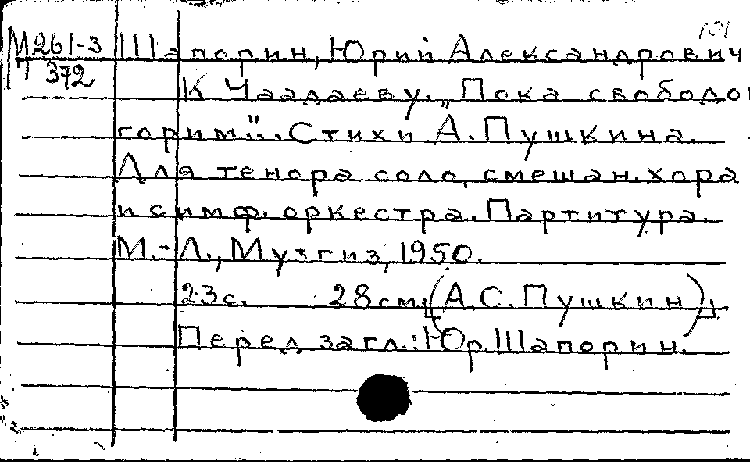 101
М261-3 Шапорин, Юрий Александрович
372
К Чаадаеву. „Пока свободой
горим". Стихи А. Пушкина.
Для тенора соло, смешан. хора
и симф. оркестра. Партитура.
М.-Л., Музгиз, 1950.
23с. 28см. (А.С. Пушкин)
Перед загл.: Юр. Шапорин.